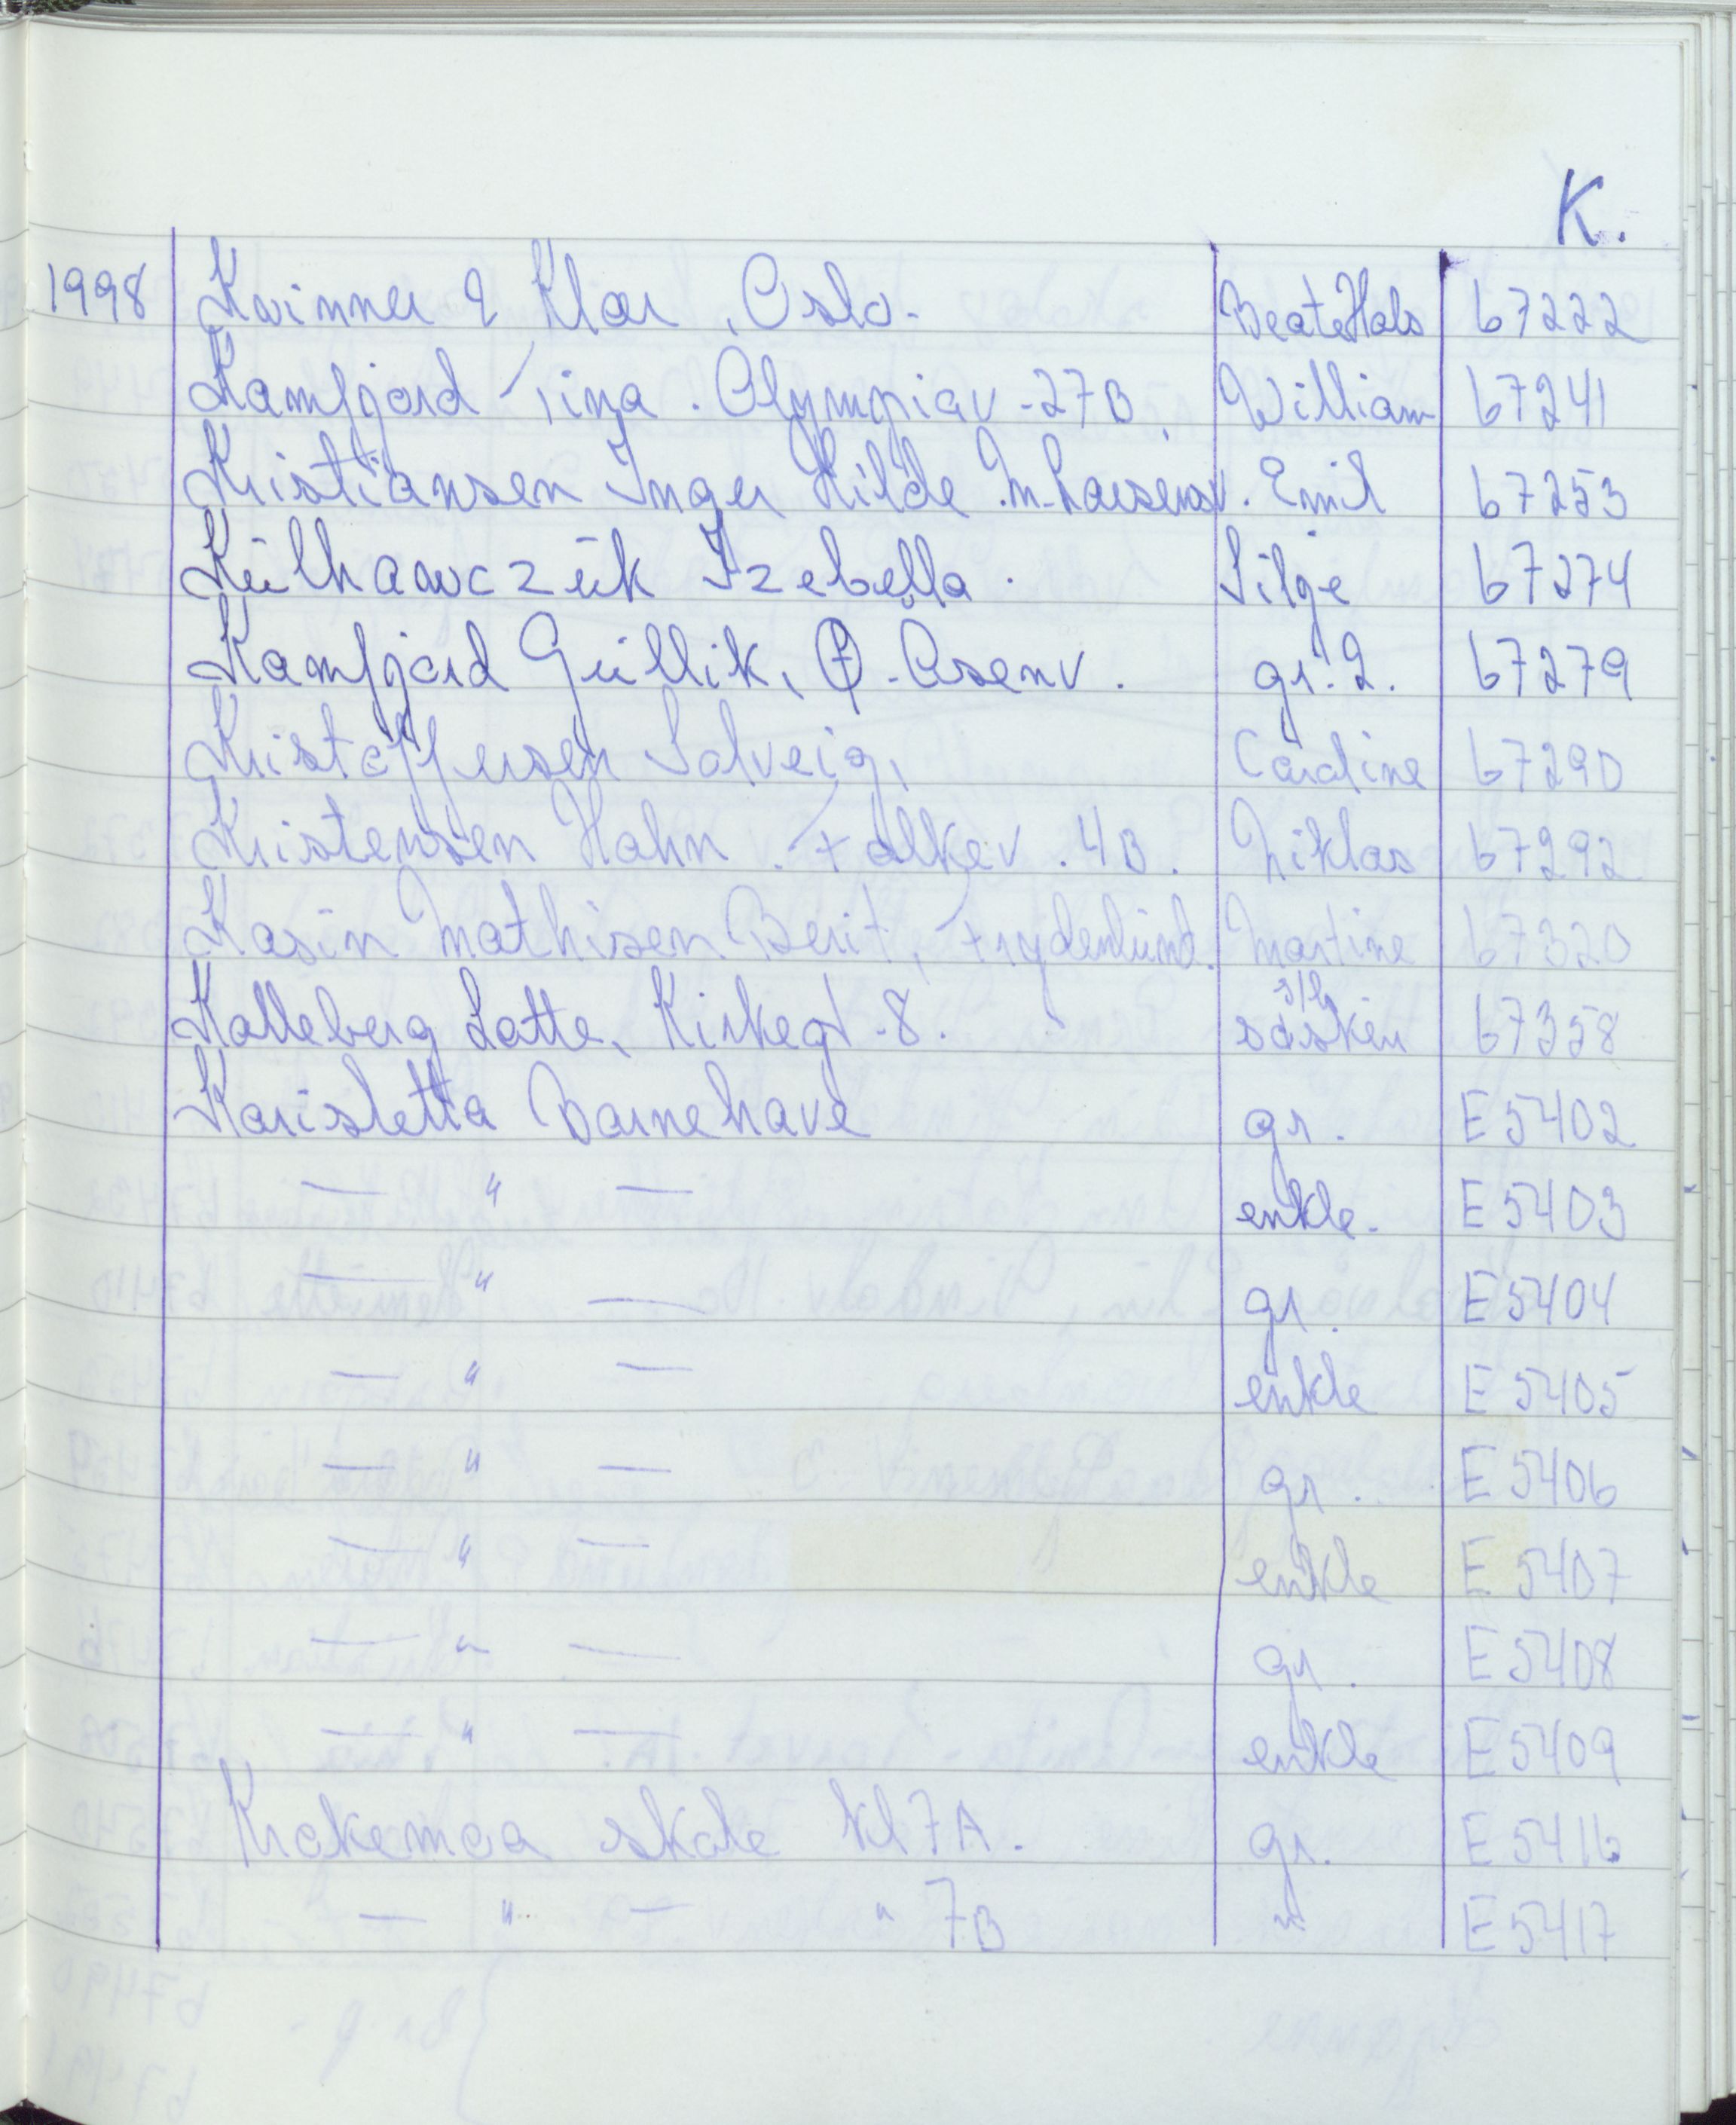 K.
1998 Kvinner & Klær, Oslo. Beate Hals 67222
Kamfjord Tina. Olympiav. 27B. William 67241
Kristiansen Inger Hilde. M. Larsensv. Emil 67253
Kulhawczuk Izebella. Silje 67274
Kamfjord Gullik, Ø. Åsenv. gr. 2. 67279
Kristoffersen Solveig, Caroline 67290
Kristensen Hahn. Falkev. 4B. Niklas 67292
Kasin Mathisen Berit, Frydenlund. Martine 67320
Kalleberg Lotte, Kirkegt. 8. s/h søsken 67358
Karisletta Barnehave gr. E 5402
— " — enkle. E 5403
— " — gr. E 5404
— " — enkle E 5405
— " — gr. E 5406
— " — enkle E 5407
— " — gr. E 5408
— " — enkle E 5409
Krokemoa skole kl 7A. gr. E 5416
— " — " 7B " E 5417